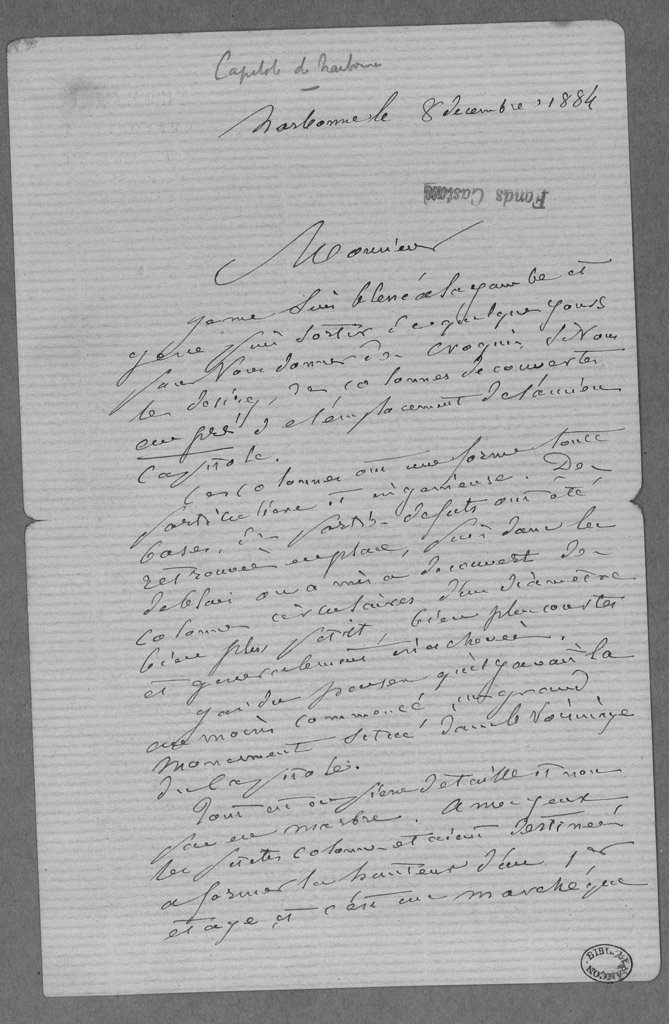 Capitole de Narbonne
Narbonne le 8 decembre 1884
Fonds Castan
Monsieur
Je me suis blessé à la jambe et
je ne puis sortir de quelques jours
pour vous donner un croquis, si vous
le desirez, des colonnes découvertes
en près de l'emplacement de l'ancien
Capitole.
Ces colonnes ont une forme toute
particulière et ingenieuse. Des
bases, des parties de futs ont été
retrouvées en place, puis dans les
deblais on a mis a decouvert des
colonnes circulaires d'un diamètre
bien plus petit, bien plus courtes
et generalement inachevées.
J'ai du penser qu'il y avait la
au moins commencé un grand
monument situé dans le voisinage
du Capitole.
Tout est en pierre de taille et non
pas en marbre. A mes yeux
les petites colonnes etaient destinées
a former la hauteur d'un 1er
etage et c'est un
BIBL. BESANÇON